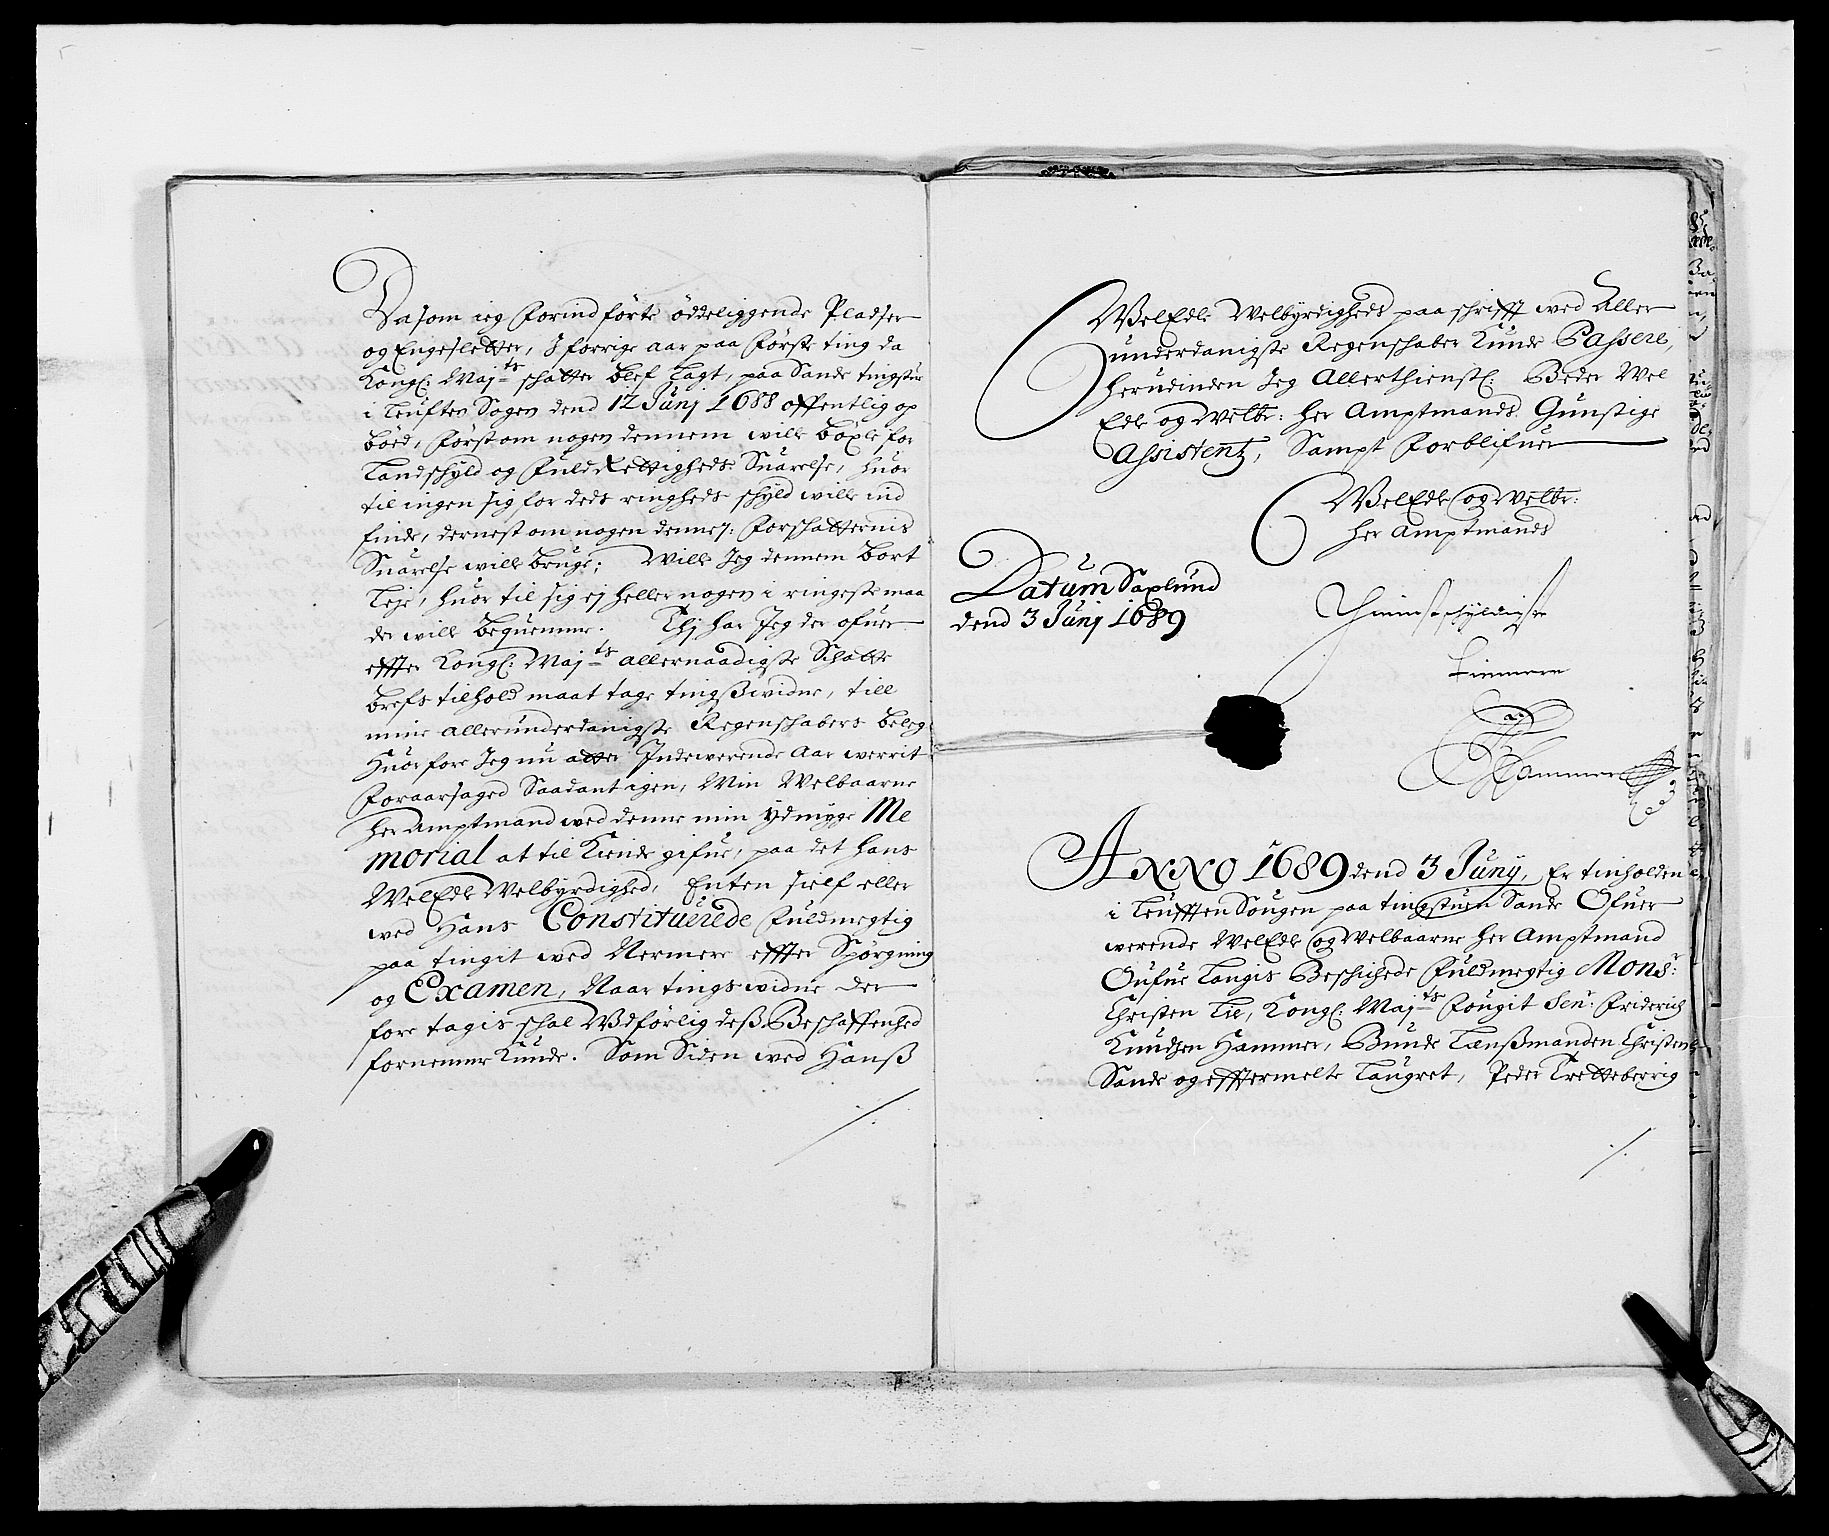 Da som ieg forindførte øddeliggende Pladser
og Engesletter, I forrige aar paa første ting da
Kongl: Maj:ts schatter blef tagt, paa Sande tingstue
i Leuften Sogen dend 12 Junj 1688 offentlig op
bøed, først om nogen dennem wille bøxle for
Landschyld og fuld Rettigheds Suarelse, huor
til ingen sig for deds ringheds schyld wille ind
finde, dernest om nogen dennes: forschatternis
Suarelse wille bruge; Wille Jeg dennem bort
leje, huor til sig ej heller nogen i ringeste maa
der wille bequemme. Thj har Jeg der ofuer
effter Kongl: Maj:ts allernaadigste Schatte
brefs tilhold maat tage tingßwidne, till
mine allerunderdanigste Regenschabers beleg.
Huorfore Jeg nu atter Indewerende Aar werrit
foraarsaged Saadant igen, Min Welbaarne
her Amptmand wed denne min ydmyge Me
morial at til Kiende gifue, paa det hans
WelEdle Welbyrdighed, Enten sielf eller
wed Hans Constituerede fuldmegtig
paa tingit wed Nermere effter Spørgning
og Examen, Naar tings widne der
fore tagis schal Udførlig deß Beschaffenhed
fornemme Kunde. Som Siden wed Hanß
WelEdle Welbyrdigheds paaschrifft wed Aller
underdanigste Regenschaber Kunde Passere,
herudinden Jeg Allerthienstl: Beder Wel
Edle og Welbr: her Amptmands Gunstige
Assistentz, Sampt forblifuer
WelEdle og Welbr:
her Amptmands
Datum Saxlund
dend 3 Junj 1689
Thienstschyldigste
Tiennere
Hammer
ANNO 1689 dend 3 Junij, Er tinholden
i Leufften Sougen paa tingstuen Sande Ofuer
werende WelEdle og Welbaarne her Amptmand
Oufue Langis Beschichede fuldmegtig Monsr:
Christen Lie, Kongl: Maj:ts fougit Senr: friderich
Knudsen Hammer, Bunde Lænßmanden Christen
Sande og efftermelte Laugret, Peder Trætteberrig